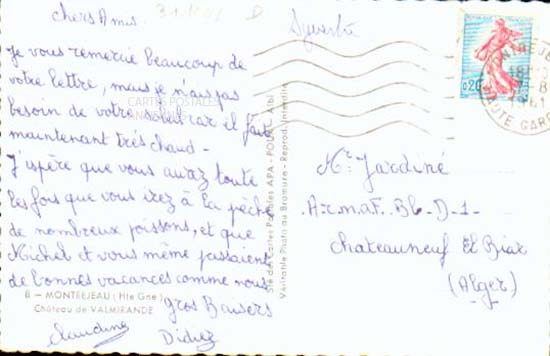 chers Amis.
Je vous remercie beaucoup de
votre lettre, mais je n'ais pas
besoin de votre car il fait
maintenant très chaud -
J'ispère que vous aurez toute
les fois que vous irez à la pêche
de nombreux poissons, et que
Michel et vous même passaient
de bonnes vacances comme nous
gros Baisers
Claudine Didier
8 - MONTREJEAU (Hte Gne)
Château de VALMIRANDE
CARTES POSTALES
Sté des Cartes Postales APA - POUX - Albi
Véritable Photo au Bromure - Reprod. Interdite
Sylvestre
0,20
MONTREJEAU
18
8
1961
HAUTE GARONNE
Mr Jardiné
A.I.M.A.F. B6-D-1-
Chateauneuf El Biar
(Alger)